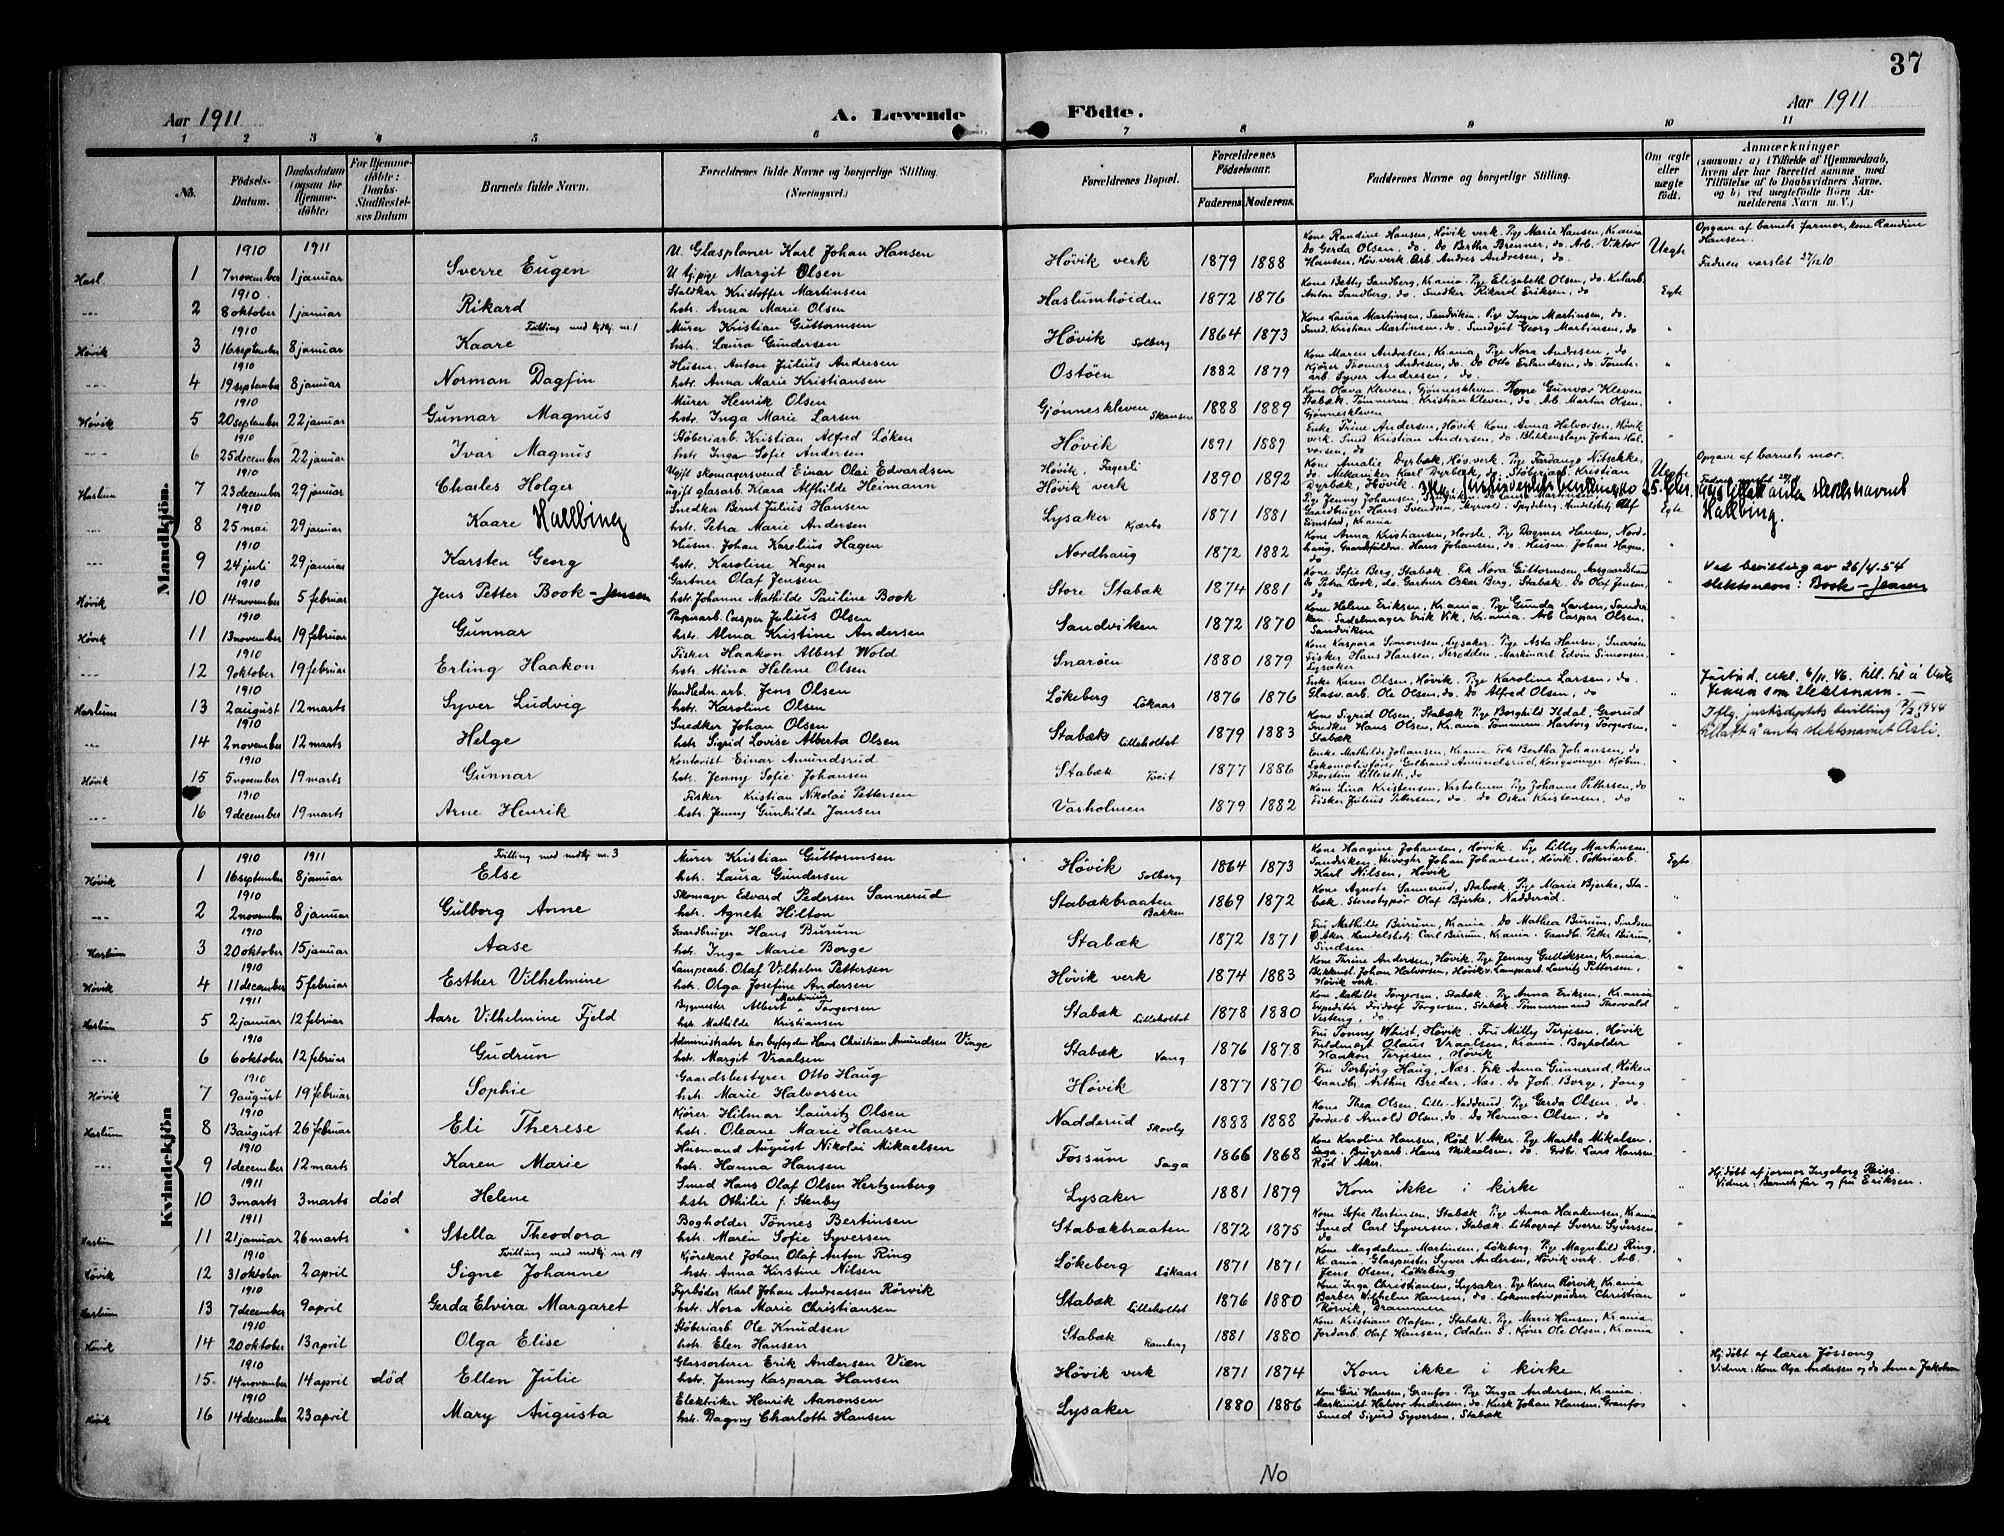 37
Aar 1911
A. Levende
Födte.
Aar 1911
1 2 3 4 5 6 7 8 9 10 11
No.
Födsels-Datum.
Daabsdatum (ogsaa for Hjemmedöbte)
For Hjemmedöbte: Daabs-Stadfæstelses Datum
Barnets fulde Navn.
Forældrenes fulde Navne og borgerlige Stilling. (Næringsvei.)
Forældrenes Bopæl.
Forældrenes Födselsaar.
Faderens. Moderens.
Faddernes Navne og borgerlige Stilling.
Om ægte eller uægte födt.
Anmærkninger
(saasom: a) i Tilfælde af Hjemmedaab, hvem der har forrettet samme med Tilföielse af to Daabsvidners Navne, og b) ved uægtefödte Börn Anmelderens Navn m. V.)
Mandkjön.
1910 1911
Hasl 1 7 november 1 januar Sverre Eugen
U. Glasplaner Karl Johan Hansen
U tj.pige Margit Olsen
Høvik verk 1879 1888
Kone Randine Hansen, Høvik verk. Pige Marie Hansen, Kr.ania
Do Gerda Olsen, do. Do Bertha Brenner, do. Arb. Viktor
Hansen, Høv.verk. Arb. Andres Andresen, do.
Uegte
Opgave af barnets farmor, kone Randine
Hansen.
Faderen varslet 27/12 10
1910
2 8 oktober 1 januar Rikard
Staldkar Kristoffer Martinsen
hstr. Anna Marie Olsen
Haslumhöiden 1872 1876
Kone Betty Sandberg, Kr.ania. Pige Elisabeth Olsen, do. Kularb.
Anton Sandberg, do. Snedker Rikard Eriksen, do
Egte
1910
Høvik 3 16 september 8 januar Kaare
Tvilling med kvkj. nr. 1
Murer Kristian Guttormsen
hstr. Laura Gundersen
Høvik Solberg 1864 1873
Kone Laura Martinsen, Sandviken. Pige Inger Martinsen, do.
Smed. Kristian Martinsen, do. Smedgut Georg Martinsen, do
1910
4 19 september 8 januar Norman Dagfin
Husm. Anton Julius Andresen
hstr. Anna Marie Kristiansen
Ostöen 1882 1879
Kone Maren Andresen, Kr.ania. Pige Nora Andresen, do
Kjörer Thomas Andresen, do. Do Otto Erlandsen, do. Tomtearb. Syver Andresen, do
1910
Høvik 5 20 september 22 januar Gunnar Magnus
Murer Henrik Olsen
hstr. Inga Marie Larsen
Gjønneskleven Skansen 1888 1889
Kone Olava Kleven, Gjønneskleven. Kone Gunvor Kleven
Stabæk. Tömmerm. Kristian Kleven, do. Arb. Martin Olsen,
Gjønneskleven
1910
6 25 december 22 januar Ivar Magnus
Støberiarb. Kristian Alfred Løken
hstr. Inga Sofie Andersen
Høvik 1891 1889
Enke Trine Andersen, Høvik. Kone Anna Halvorsen, Høvik
verk. Smed Kristian Andersen, do. Blikkenslager Johan Halvorsen, do
1910
Haslum 7 23 december 29 januar Charles Holger
Ugift skomagersvend Einar Olai Edvardsen
ugift glasarb. Klara Alfhilde Heimann
Høvik, Fagerli
Høvik verk 1890 1892
Kone Amalie Dyrbæk, Høv.verk.
do. Mekaniker Karl Dyrbæk, do. Støberiarb. Kristian
Dyrbæk, Høvik
Uegte
Opgave af barnets mor.
1910
8 25 mai 29 januar Kaare Hallbing
Snedker Bernt Julius Hansen
hstr. Petra Marie Andersen
Lysaker Kjærbo 1871 1881
Gaardbruger Hans Svendsen,
Kr.ania
Egte
anta slektsnavnet
Hallbing.
1910
9 24 juli 29 januar Karsten Georg
Husm. Johan Karelius Hagen
hstr. Karoline Hagen
Nordhaug 1872 1882
Kone Anna Kristiansen, Horsle. Pige Dagmar Hansen, Nordhaug. Gaardsfuldm. Hans Johansen, do. Husm. Johan Hagen,
do
1910
Høvik 10 14 november 5 februar Jens Petter Book - Jensen
Gartner Olaf Jensen
hstr. Johanne Mathilde Pauline Book
Store Stabæk 1874 1881
Kone Sofie Berg, Stabæk. Frk Nora Guttormsen, Aasgaardstrand
do Petra Book, do. Gartner Osker Berg, Stabæk. Do Olaf Jensen,
do
Ved bevilling av 26/4.54
slektsnavn: Book - Jensen
1910
Høvik 11 13 november 19 februar Gunnar
Papirarb. Casper Julius Olsen
hstr. Alma Kristine Andersen
Sandviken 1872 1870
Kone Helene Eriksen, Kr.ania. Pige Gunda Larsen, Sanderken. Sadelmager Erik Vik, Kr.ania. Arb Caspar Olsen,
Sandviken
1910
12 9 oktober 19 februar Erling Haakon
Fisker Haakon Albert Wold
hstr. Mina Helene Olsen
Snarøen 1880 1879
Kone Kaspara Simonsen, Lysaker. Pige Asta Hansen, Snarøen
Fisker Hans Hansen, Nesodden. Maskinarb. Edvin Simonsen,
Lysaker
1910
Haslum 13 2 august 12 marts Syver Ludvig
Vandledn.arb. Jens Olsen
hstr. Karoline Olsen
Løkeberg Løkaas 1876 1876
Enke Karen Olsen, Høvik. Pige Karoline Larsen, do.
Glasv.arb. Ole Olsen, do. Do Alfred Olsen, do
som slektsnavn.
1910
14 2 november 12 marts Helge
Snedker Johan Olsen
hstr. Sigrid Lovise Alberta Olsen
Stabæk Lilleholtet 1879 1883
Kone Sigrid Olsen, Stabæk. Pige Borghild Ildal, Grorud
Snedker Hans Olsen, Kr.ania. Tömmerm. Hartvig Torgersen,
Stabæk
Iflg. justisdeptets bevilling 1944
tillatt å anta slektsnavnet Asli.
1910
Høvik 15 5 november 19 marts Gunnar
Kontorist Einar Amundsrud
hstr. Jenny Sofie Johansen
Stabæk Tveit 1877 1886
Enke Mathilde Johansen, Kr.ania. Frk Bertha Johansen, do
Lokomotivfører Gulbrand Amundsrud, Kongsvinger. Kjøbm.
Thorstein Lilleseth, do
1910
16 9 december 19 marts Arne Henrik
Fisker Kristian Nikolai Pettersen
hstr. Jenny Gunhilde Jansen
Vasholmen 1879 1882
Kone Lina Kristensen, Vasholmen. Pige Johanne Pettersen, do
Fisker Julius Petersen, do. do Osker Kristensen, do
Kvindekjön
1910 1911
Høvik 1 16 september 8 januar Else
Tvilling med mdkj. nr. 3
Murer Kristian Guttormsen
hstr. Laura Gundersen
Høvik Solberg 1864 1873
Kone Haagine Johansen, Høvik. Pige Lilly Martinsen,
Sandviken. Veivogter Johan Johansen, Høvik. Potteriarb.
Karl Nilsen, Høvik
Egte
1910
2 2 november 8 januar Gulborg Anne
Skomager Edvard Pedersen Sannerud
hstr. Agnete Hilton
Stabækbraaten Bakken 1869 1872
Kone Agnete Sannerud, Stabæk. Pige Marie Bjerke, Stabæk. Stereotypør Olaf Bjerke, Nadderud.
1910
Haslum 3 20 oktober 15 januar Aase
Gaardbruger Hans Burum
hstr. Inga Marie Borge
Stabæk 1872 1871
Fru Mathilde Burum, Kr.ania. Do Mathea Burum, Sindsen
Ø. Aker. Handelsbetj. Carl Burum, Kr.ania. Gaardb. Petter Burum,
Sindsen
1910
Høvik 4 11 december 5 februar Esther Vilhelmine
Lampearb. Olaf Vilhelm Pettersen
hstr. Olga Josefine Andersen
Høvik verk 1874 1883
Kone Thrine Andersen, Høvik. Pige Jenny Gulliksen, Kr.ania
Blikkensl. Johan Halvorsen, Høvik. Lampearb. Lauritz Pettersen,
Høvik verk.
1911
Haslum 5 2 januar 12 februar Aase Vilhelmine Fjeld
Bygmester Albert Martinius Torgersen
hstr. Mathilde Kristiansen
Stabæk Lilleholtet 1878 1880
Kone Mathilde Torgersen, Stabæk. Pige Anna Eriksen, Kr.ania
Expeditør Fridolf Torgersen, Stabæk. Tömmermand Thorvald
Vesteng, do
1910
6 6 oktober 12 februar Gudrun
Administrator hos byfogden Hans Christian Amundsen Vinge
hstr. Margit Vraalsen
Stabæk Vang 1876 1878
Fru Tonny Whist, Høvik. Fru Milly Terjesen, Høvik
Fuldmægt Olaus Vraalsen, Kr.ania. Bogholder
Haakon Terjesen, Høvik
1910
Høvik 7 9 august 19 februar Sophie
Gaardsbestyrer Otto Haug
hstr. Marie Halvorsen
Høvik 1877 1870
Fru Torbjörg Haug, Næs. Frk Anna Gunnerud, Røken
Gaardbr. Arthur Breder, Næs. Do Joh. Borge, Jong
1910
Haslum 8 13 august 26 februar Eli Therese
Kjører Hilmar Lauritz Olsen
hstr. Oleane Marie Hansen
Nadderud Skovly 1888 1888
Kone Thea Olsen, Lille-Nadderud. Pige Gerda Olsen, do.
Jordarb. Arnold Olsen, do. do Herman Olsen, do
1910
9 1 december 12 marts Karen Marie
Husmand August Nikolai Mikaelsen
hstr. Hanna Hansen
Fossum Saga 1866 1868
Kone Karoline Hansen, Rød V. Aker. Pige Martha Mikalsen,
Saga. Brugsarb. Hans Mikaelsen, do. Grdbr. Lars Hansen
Rød V. Aker.
1911
10 3 marts 3 marts død Helene
Smed Hans Olaf Olsen Hertzenberg
hstr Othilie f. Stenby
Lysaker 1881 1879
Kom ikke i kirke
Hj.døbt af jormor Ingeborg Reiss.
Vidner: Barnets far og fru Eriksen.
1911
Haslum 11 21 januar 26 marts Stella Theodora
Bogholder Tönnes Bertinsen
hstr. Maren Sofie Syversen
Stabækbraaten 1872 1875
Kone Sofie Bertinsen, Stabæk. Pige Anna Haakensen, Kr.ania
Smed Carl Syversen, Stabæk. Lithograf Sverre Syversen,
do
1910
Høvik 12 31 oktober 2 april Signe Johanne
Tvilling med mdkj. nr. 19
Kjörekarl Johan Olaf Anton Ring
hstr. Anna Kirstine Nilsen
Løkeberg Løkaas 1871 1871
Kone Magdalene Martinsen, Løkeberg. Pige Magnhild Ring,
Kr.ania. Glaspuster Syver Andersen, Høvik verk. Arb.
Jens Olsen, Løkeberg
1910
Haslum 13 7 december 9 april Gerda Elvira Margaret
Fyrbøder Karl Johan Andreassen Rörvik
hstr. Nora Marie Christiansen
Stabæk Lilleholtet 1876 1880
Kone Inga Christiansen, Lysaker. Pige Karen Rörvik, Kr.ania
Barber Wilhelm Hansen, do. Lokomotivpudser Christian
Rörvik, Drammen
1910
Høvik 14 20 oktober 13 april Olga Elise
Støberiarb. Ole Knudsen
hstr. Elen Hansen
Stabæk Ramberg 1881 1880
Kone Kristian Olafsen, Stabæk. Pige Marie Hansen, Kr.ania.
Jordarb. Olaf Hansen, Odalen S. Kjører Ole Olsen, Kr.ania
1910
15. 14 november 14 april død Ellen Julie
Glassorterer Erik Andersen Vien
hstr. Jenny Kaspara Hansen
Høvik verk 1871 1874
Kom ikke i kirke
Hj.døbt af lærer Jøssong
Vidner: Kone Olga Andersen og do Anna Jakobsen
1910
Høvik 16 14 december 23 april Mary Augusta
Elektriker Henrik Aanonsen
hstr. Dagny Charlotte Hansen
Lysaker 1880 1886
Kone Gina Hansen, Granfos. Pige Inga Andersen, Kr.ania.
Maskinist Halvor Andersen, do. Kusk Johan Hansen, Granfos
Smed Sigurd Syversen, Stabæk
No